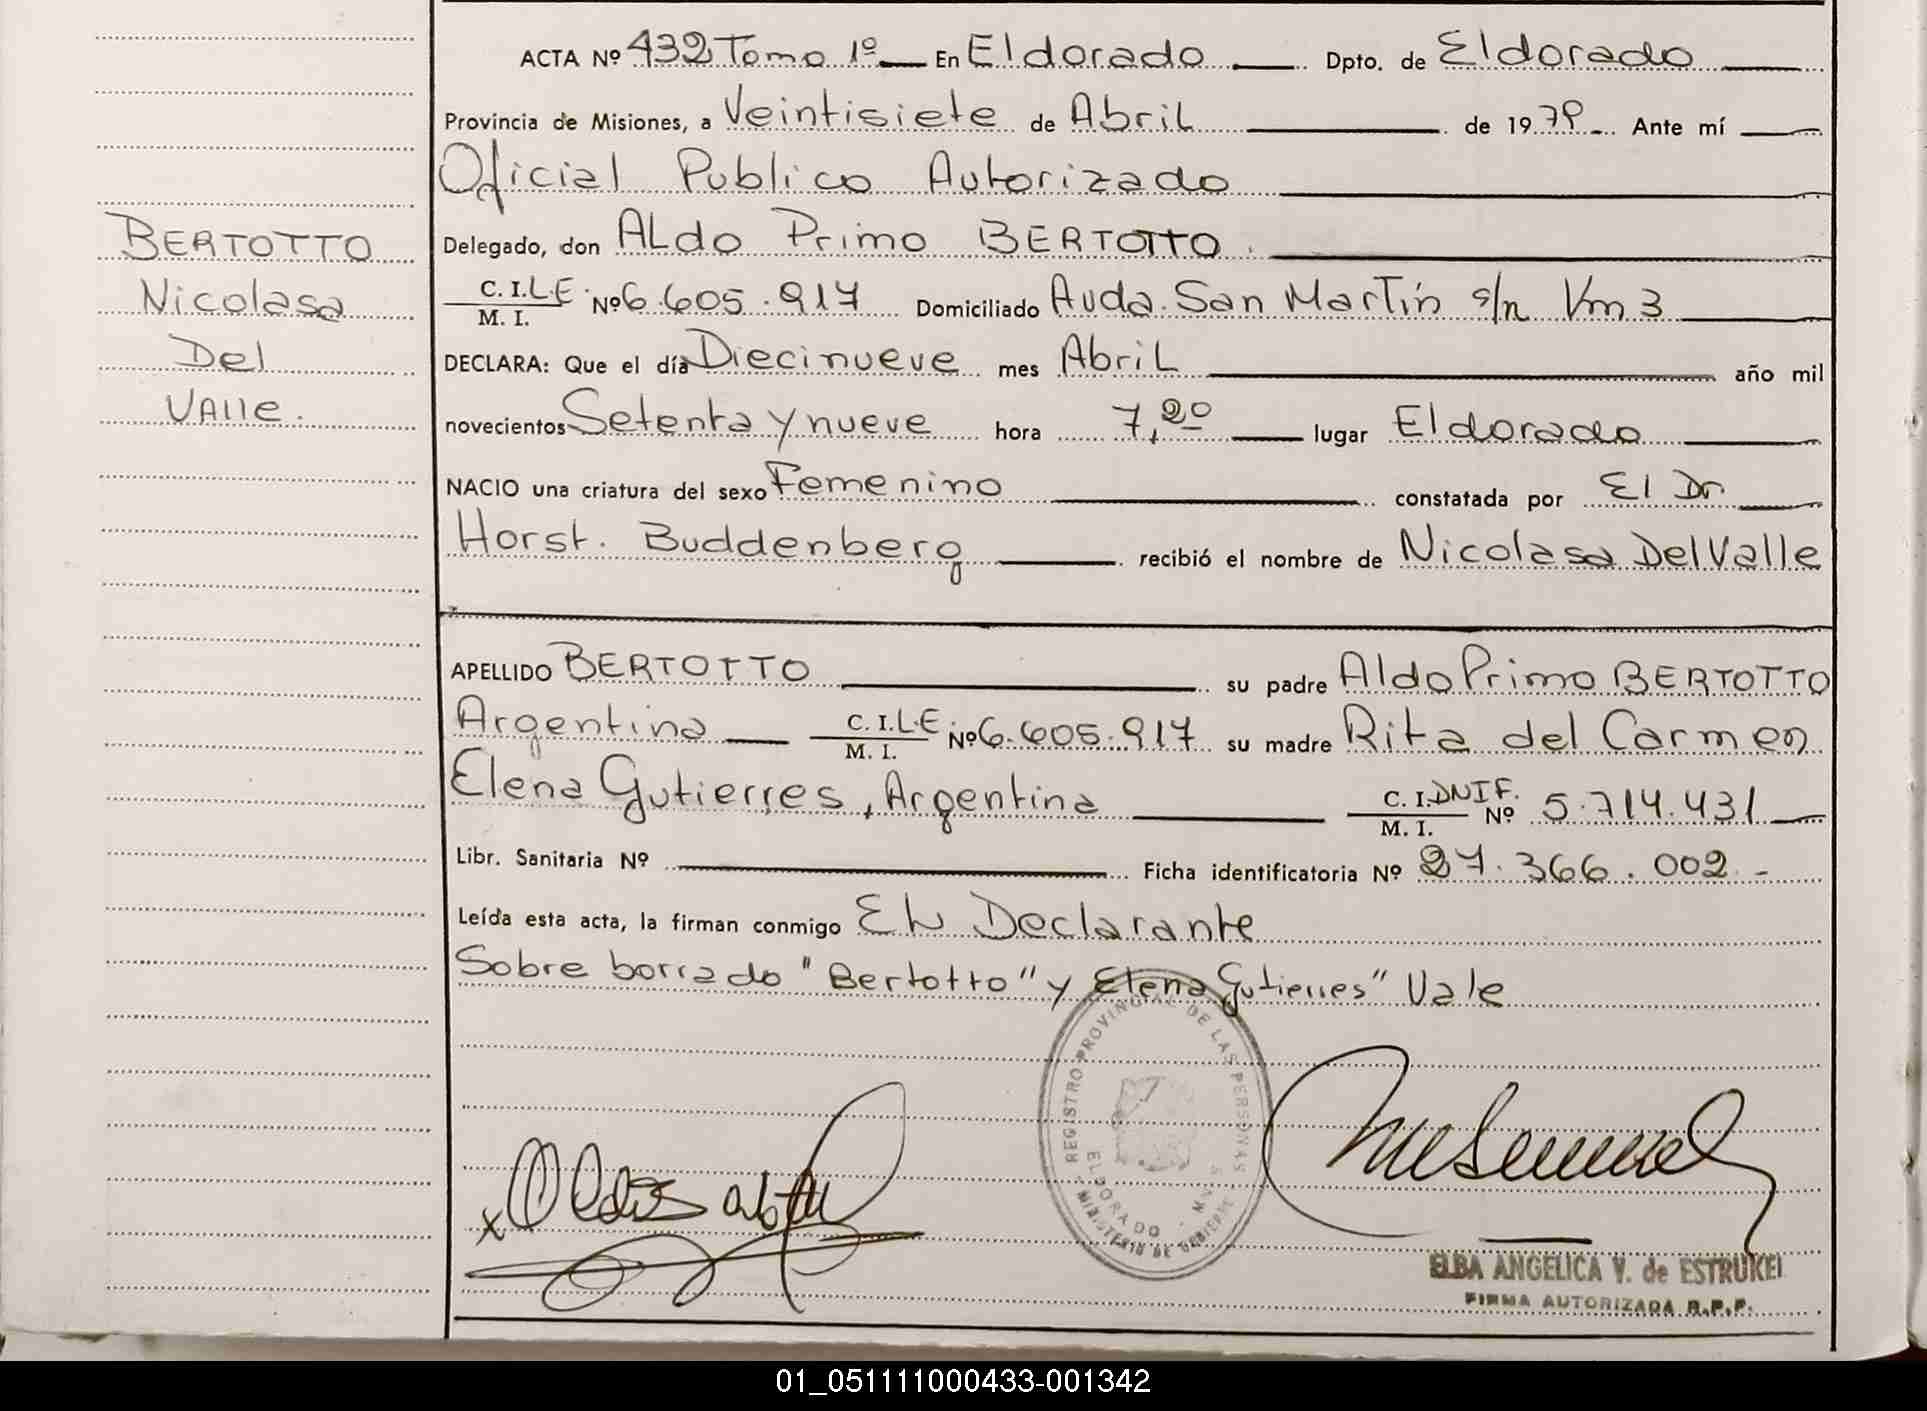 ACTA Nº 432 Tomo 1º En Eldorado Dpto. de Eldorado
Provincia de Misiones, a Veintisiete de Abril de 1979 Ante mí
Oficial Publico Autorizado
BERTOTTO
Nicolasa
Del
Valle.
Delegado, don ALdo Primo BERTOTTO.
C. I. LE Nº 6.605.917 Domiciliado Avda. San Martín s/n Km 3
M. I.
DECLARA: Que el día Diecinueve mes Abril año mil
novecientos Setenta y nueve hora 7,20 lugar Eldorado
NACIO una criatura del sexo Femenino constatada por El Dr
Horst. Buddenberg recibió el nombre de Nicolasa Del Valle
APELLIDO BERTOTTO su padre Aldo Primo BERTOTTO
Argentino C. I. LE Nº 6.605.917 su madre Rita del Carmen
M. I.
Elena Gutierres, Argentina C. I. DNIF. Nº 5.714.431
M. I.
Libr. Sanitaria Nº Ficha identificatoria Nº 27.366.002.-
Leída esta acta, la firman conmigo EL Declarante
Sobre borrado "Bertotto" y Elena Gutierres" Vale
REGISTRO PROVINCIAL DE LAS PERSONAS
ELDORADO - MNES
MINISTERIO DE GOBIERNO
ELBA ANGELICA V. de ESTRUKEL
FIRMA AUTORIZADA R.P.P.
01_051111000433-001342